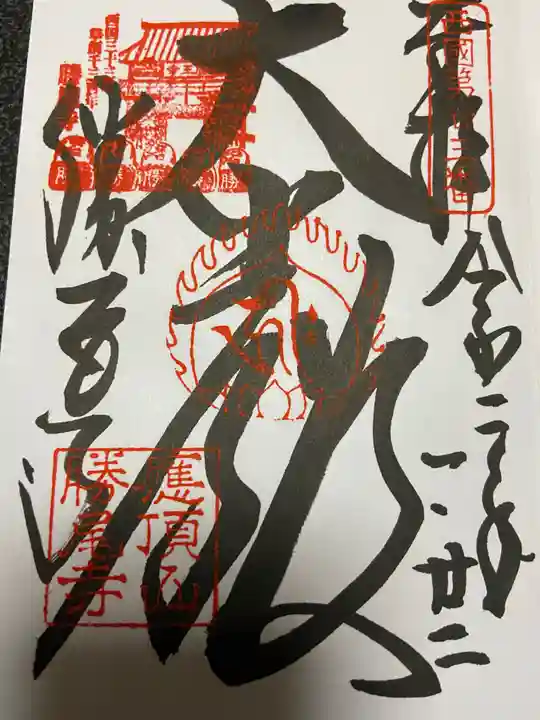 奉拝
西國第廿三番
令和二年
一、廿二
大悲殿
勝尾寺
應頂山
勝尾寺